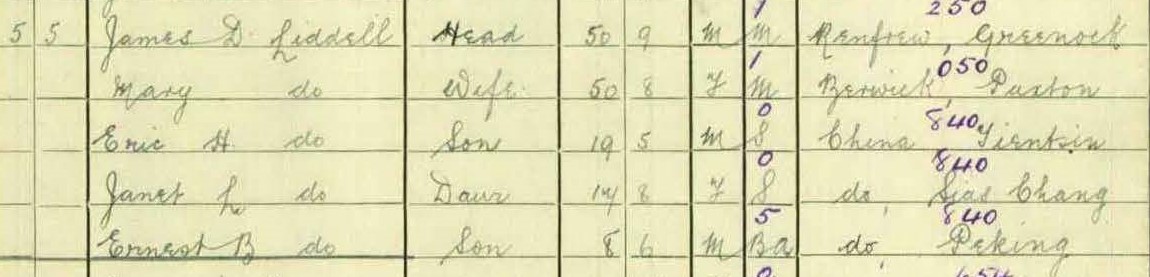 1 250
5 5 James D. Liddell Head 50 9 M M Renfrew, Greenock
1 050
Mary do Wife 50 8 F M Berwick, Paxton
0 840
Eric H. do Son 19 5 M S China Tientsin
0 840
Janet L do Daur 17 8 F S do, Siao Chang
5 840
Ernest B do Son 8 6 M Ba do, Peking